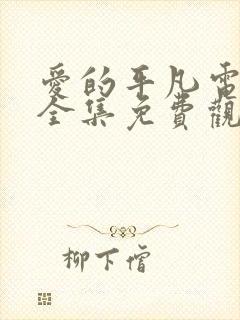 愛的平凡電
全集免費觀
柳下僧